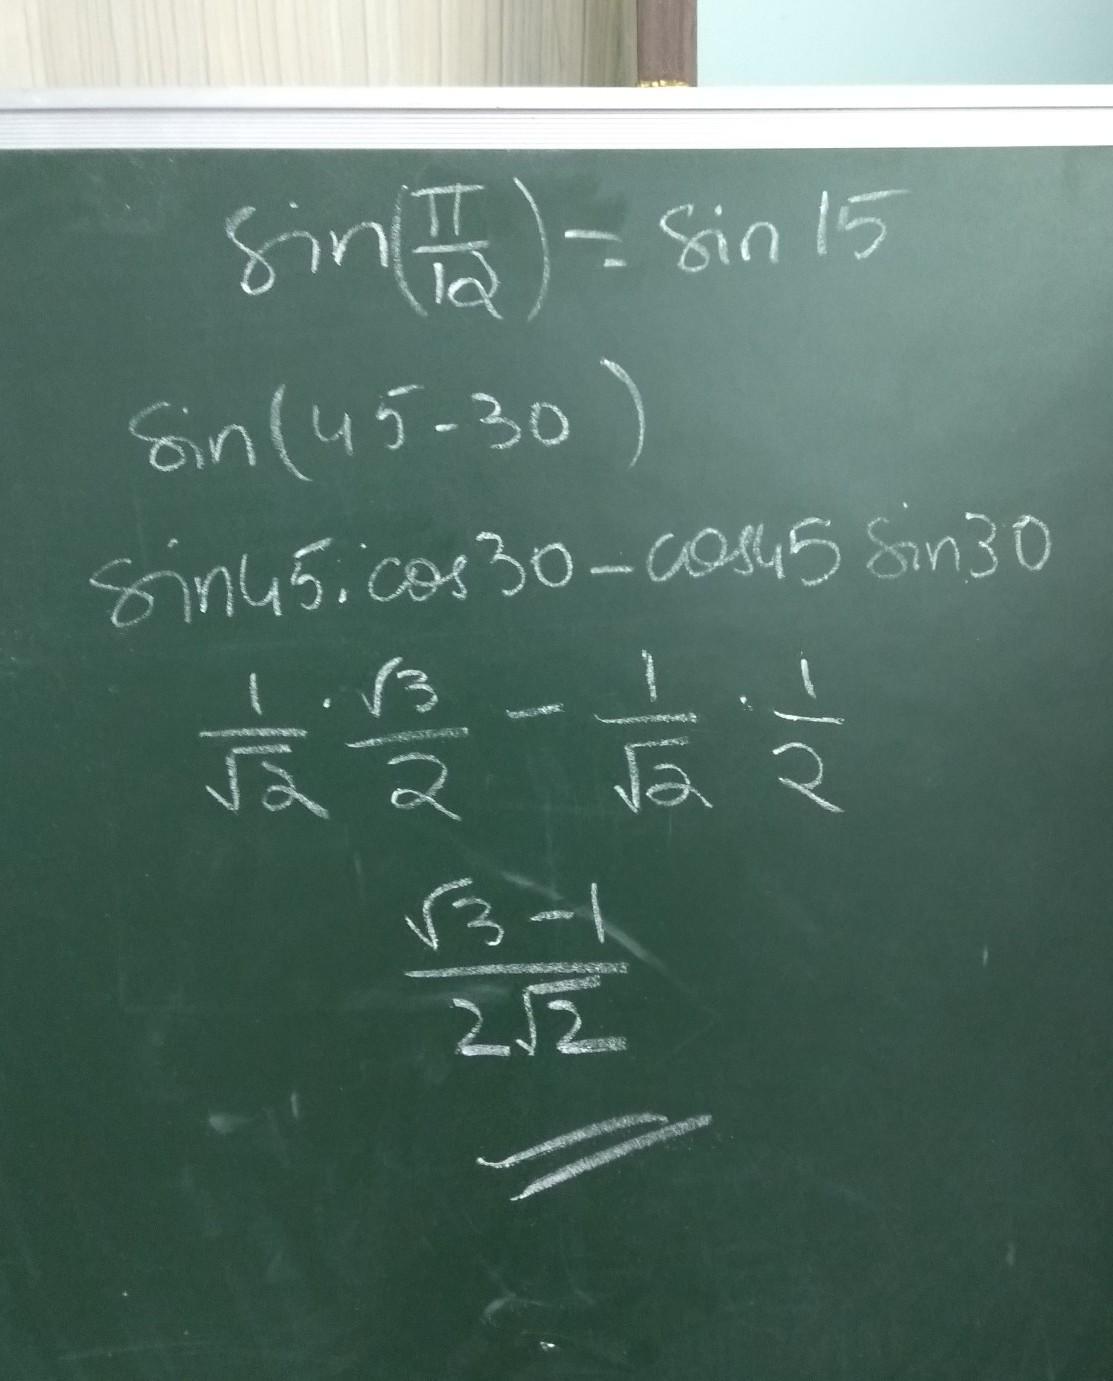 sin(π/12) = sin 15
sin(45-30)
sin45.cos30-cos45 sin30
1/√2 · √3/2 - 1/√2 · 1/2
√3-1/2√2